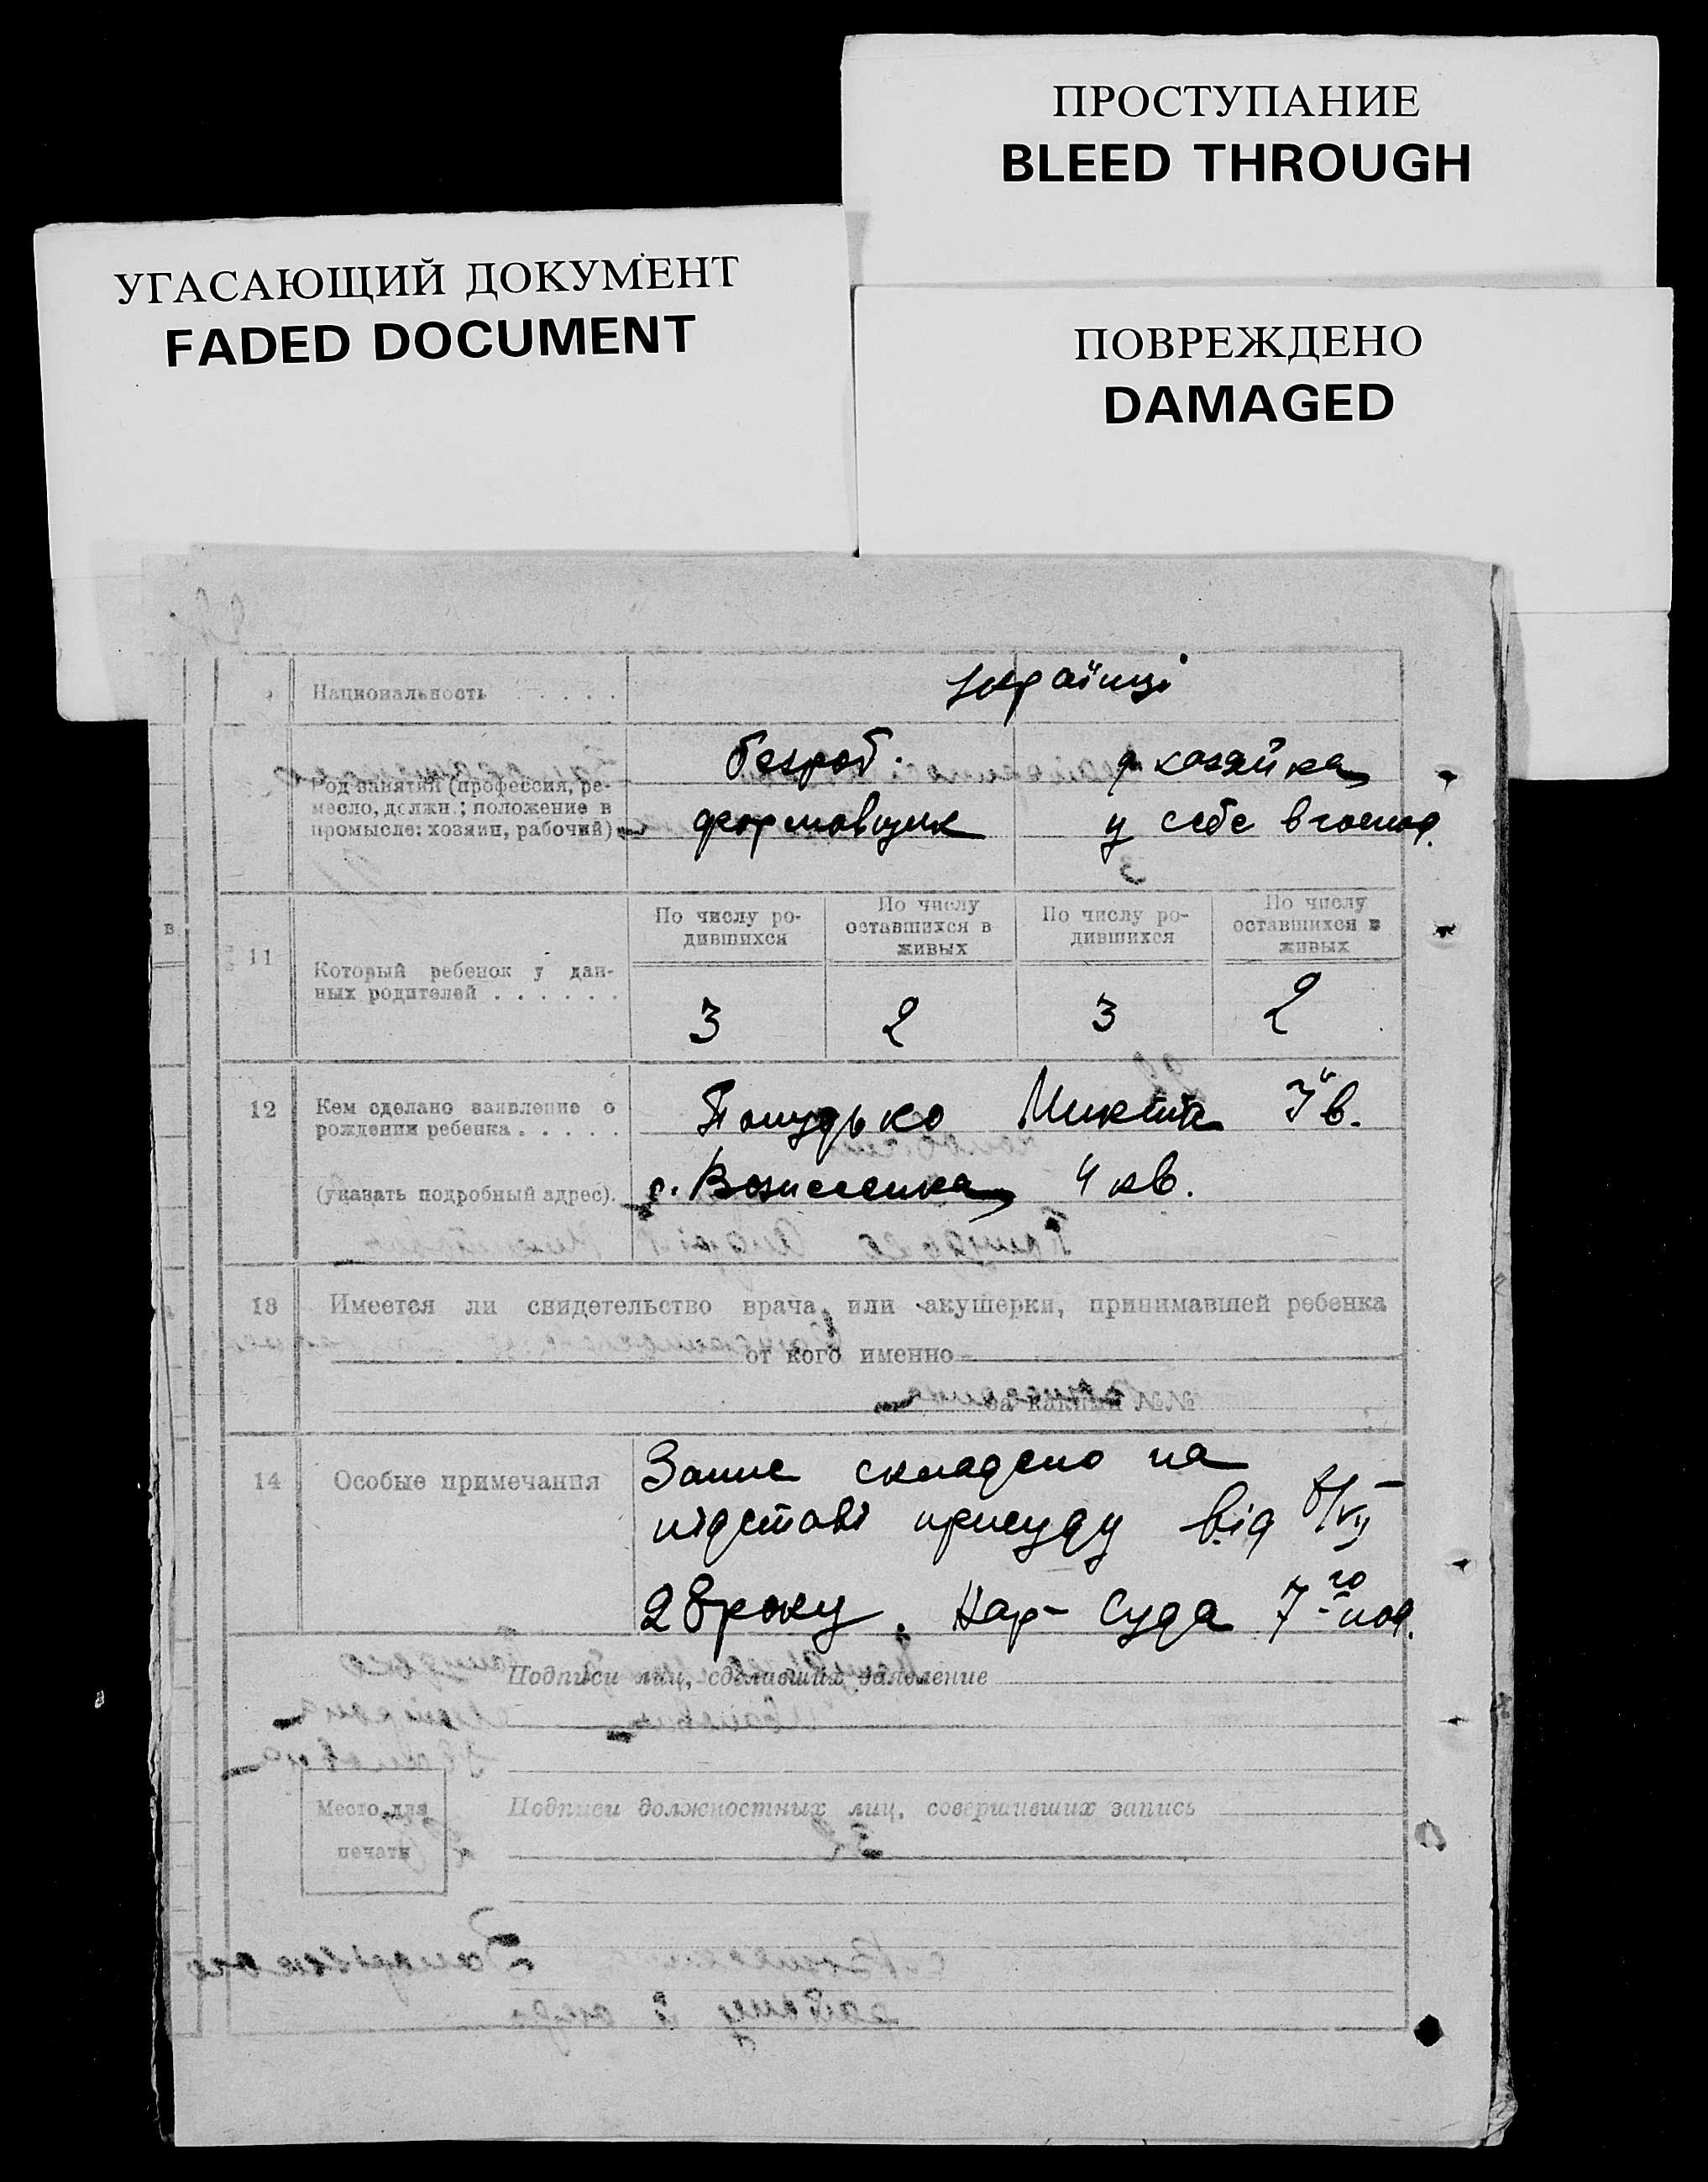 ПРОСТУПАНИЕ
BLEED THROUGH
УГАСАЮЩИЙ ДОКУМЕНТ
FADED DOCUMENT
ПОВРЕЖДЕНО
DAMAGED
Национальность . . . . .
українці
Род занятий (профессия, ре-
месло, должн.; положение в
промысле: хозяин, рабочий)
безроб.
формовщик
д хозяйка
у себе в господ.
3
в
11
Который ребенок у дан-
ных родителей . . . . . .
По числу ро-
дившихся
По числу
оставшихся в
живых
По числу ро-
дившихся
По числу
оставшихся в
живых
3
2
3
2
12
Кем сделано заявление о
рождении ребенка . . . . .
(указать подробный адрес).
Микита Ів.
с. Вознесенка 4 кв.
13
Имеется ли свидетельство врача или акушерки, принимавшей ребенка
от кого именно
за каким №№
14
Особые примечания
Запис складено на
підставі присуду від 8/VII
28 року. Нар- Суда 7го
Подписи лиц, сделавших заявление
Место для
печати
Подписи должностных лиц, совершивших запись